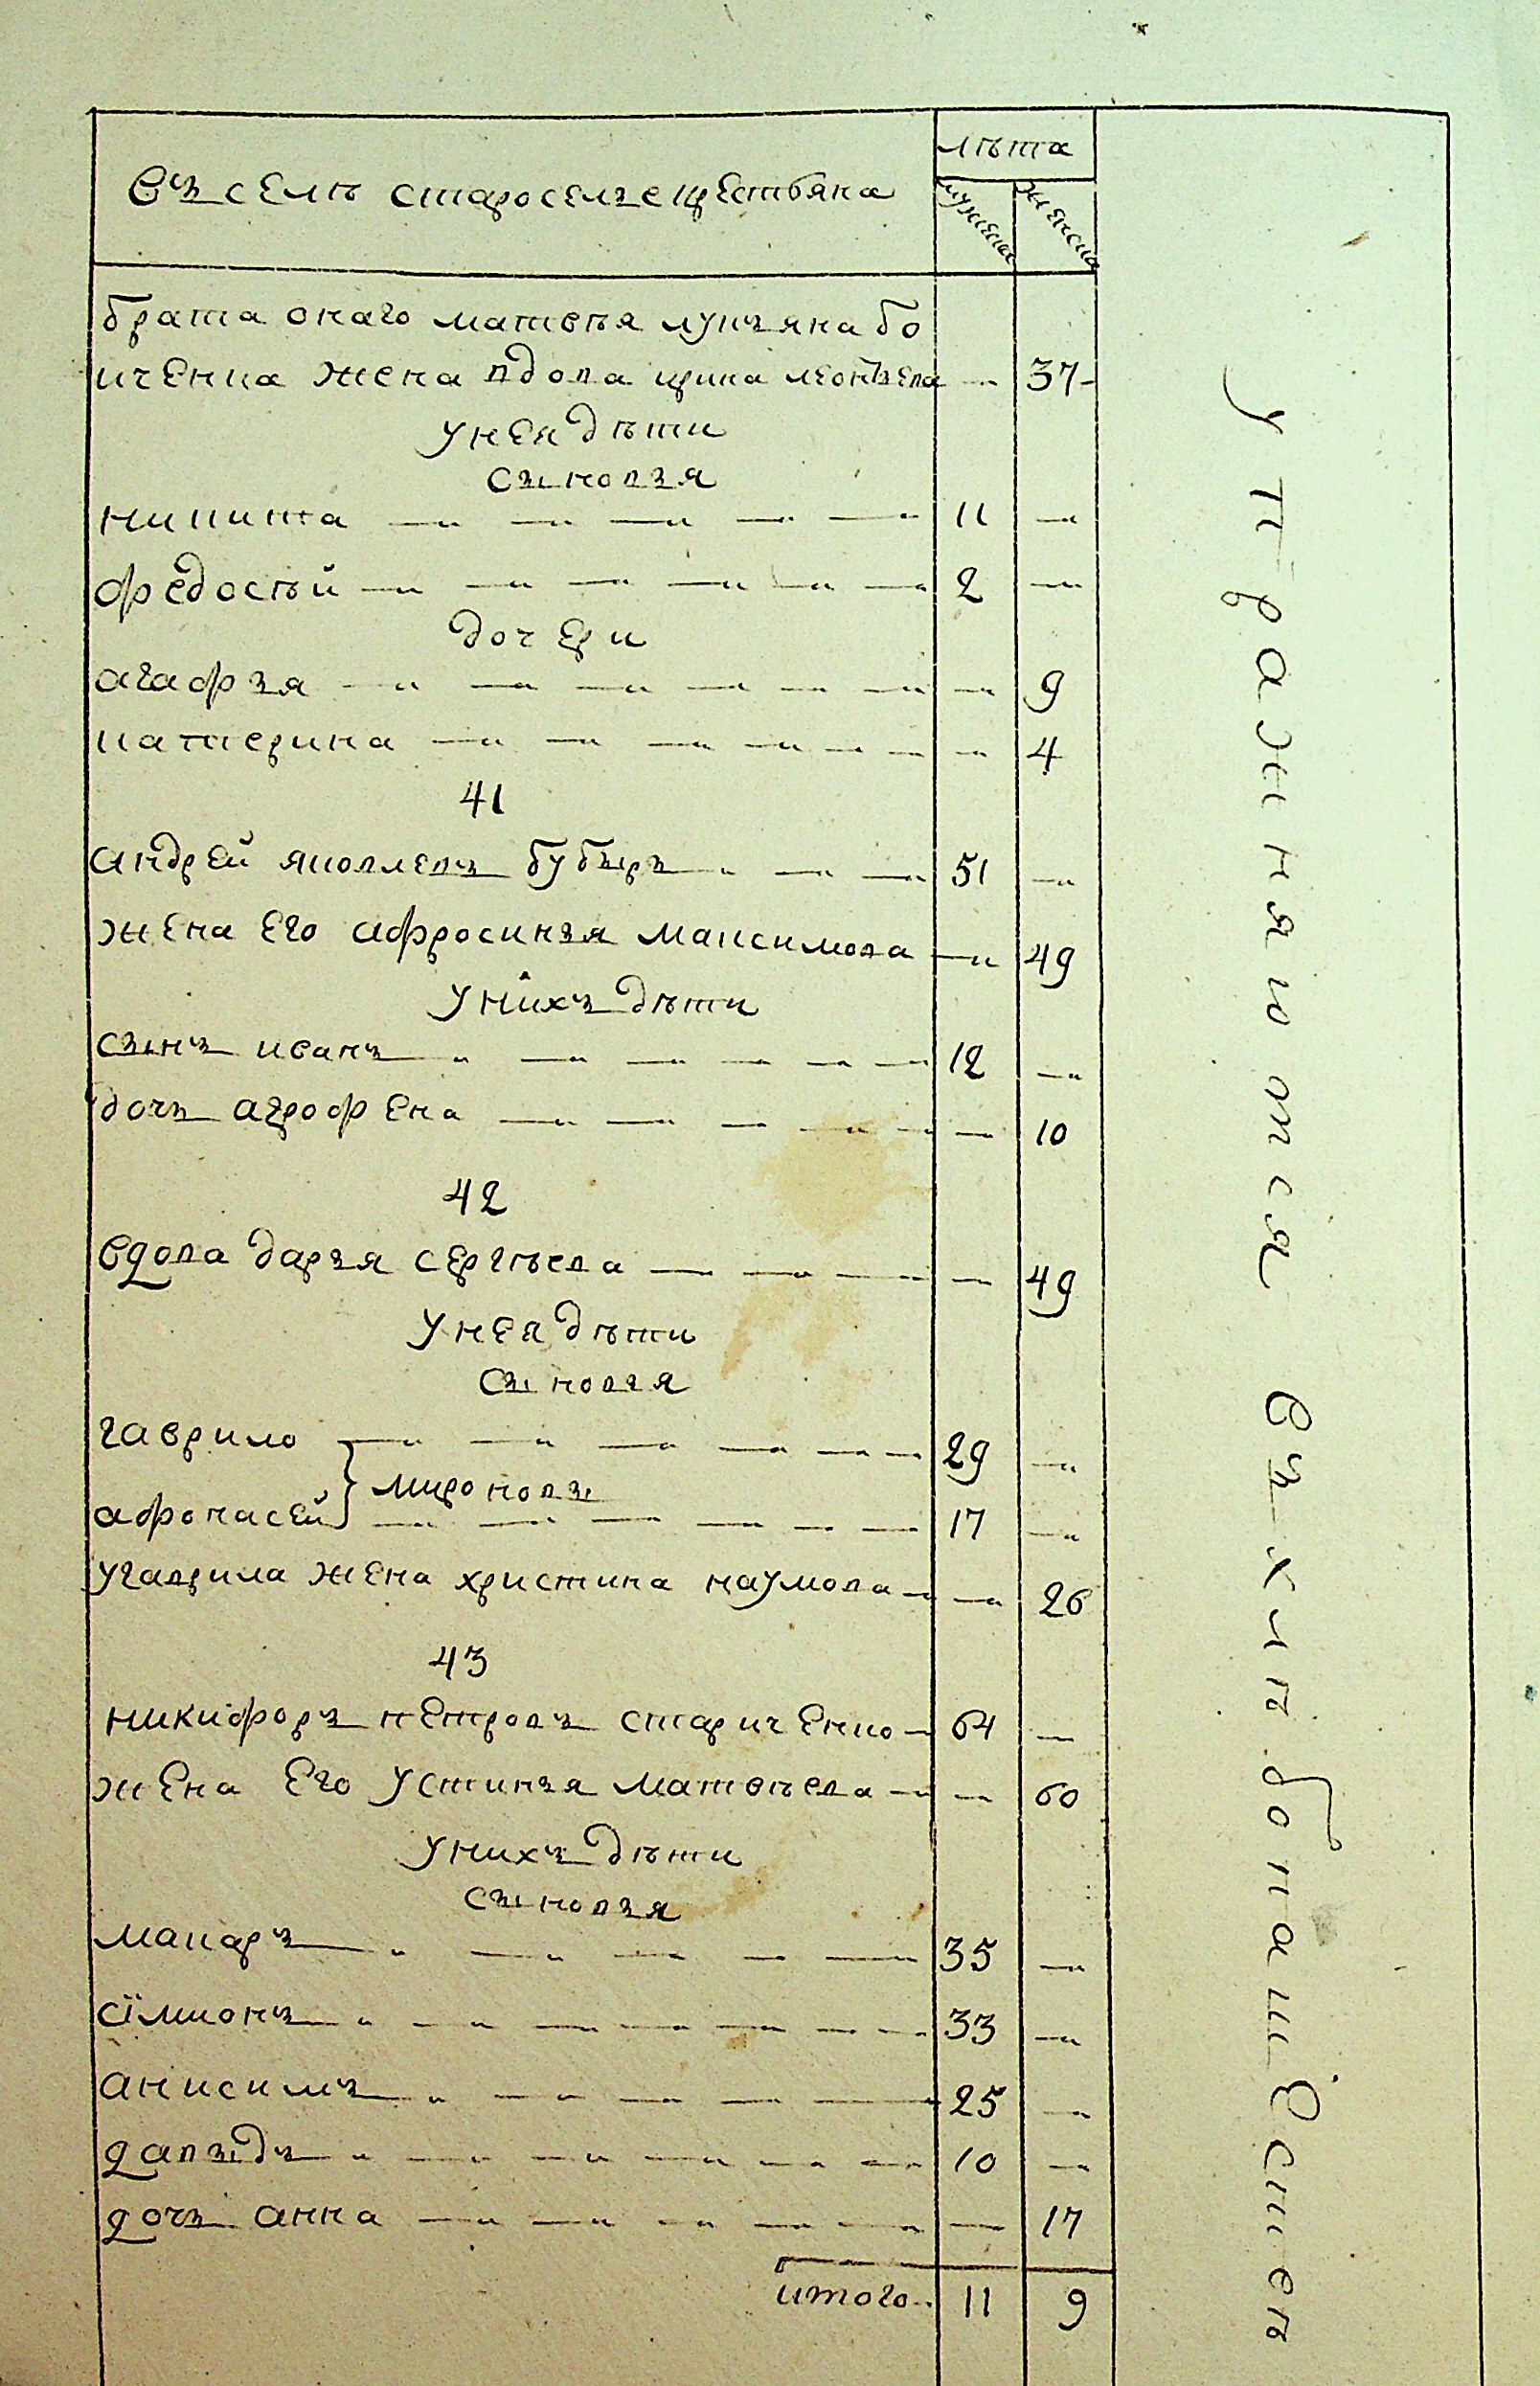 Въ селѣ староселье цествяна
лѣта
мужеска
женска
брата онаго матвѣя лукъяна бо
иченка жена вдова ирина леонтьева — 37
У нея дѣти
сыновья
никита — 11 —
федосѣй — 2 —
дочери
агафья — — 9
катерина — — 4
41
андрей яковлевъ бубырь — 51 —
жена его афросинья максимова — 49
У нихъ дѣти
сынъ иванъ — 12 —
дочь агрофена — — 10
42
вдова дарья сергѣева — — 49
У нея дѣти
сыновья
гаврило — 29 —
мироновы
афонасей — 17 —
У гаврила жена христина наумова — — 26
43
никифоръ петровъ стариченко — 64 —
жена его устинья матвѣева — — 60
У нихъ дѣти
сыновья
макаръ — 35 —
сімионъ — 33 —
анисимъ — 25 —
давыдъ — 10 —
дочь анна — — 17
итого 11 9
Упражняются въ хлѣбопашествѣ